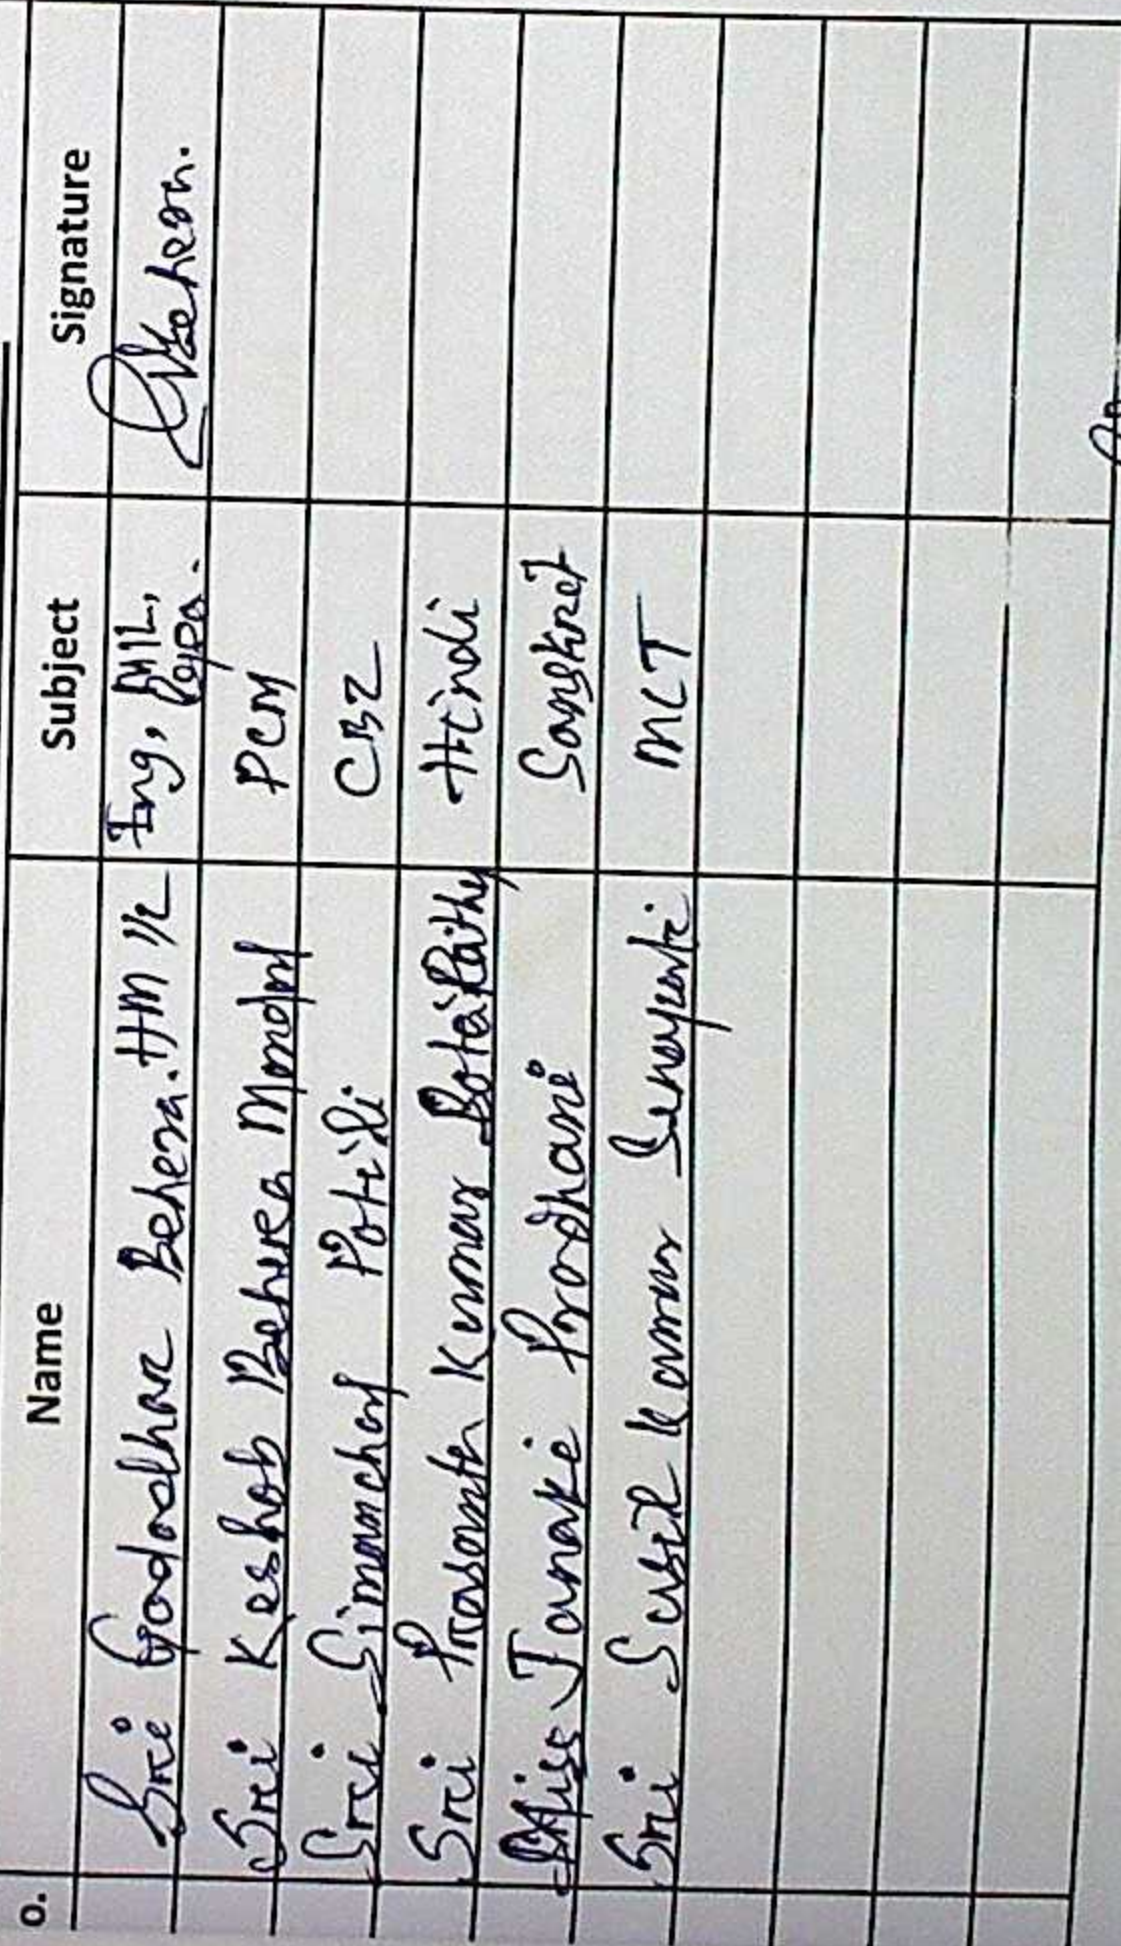 o. Name Subject Signature
Sri Gadadhar Behera. HM I/c Eng, MIL,
Behera.
Sri Keshab Behera Mondal PCM
Sri Simanchal Potili CBZ
Sri Prasanta Kumar Kumar Hindi
Miss Janaki Pradhani Sanskrit
Sri Susil Kumar Senapati MCT